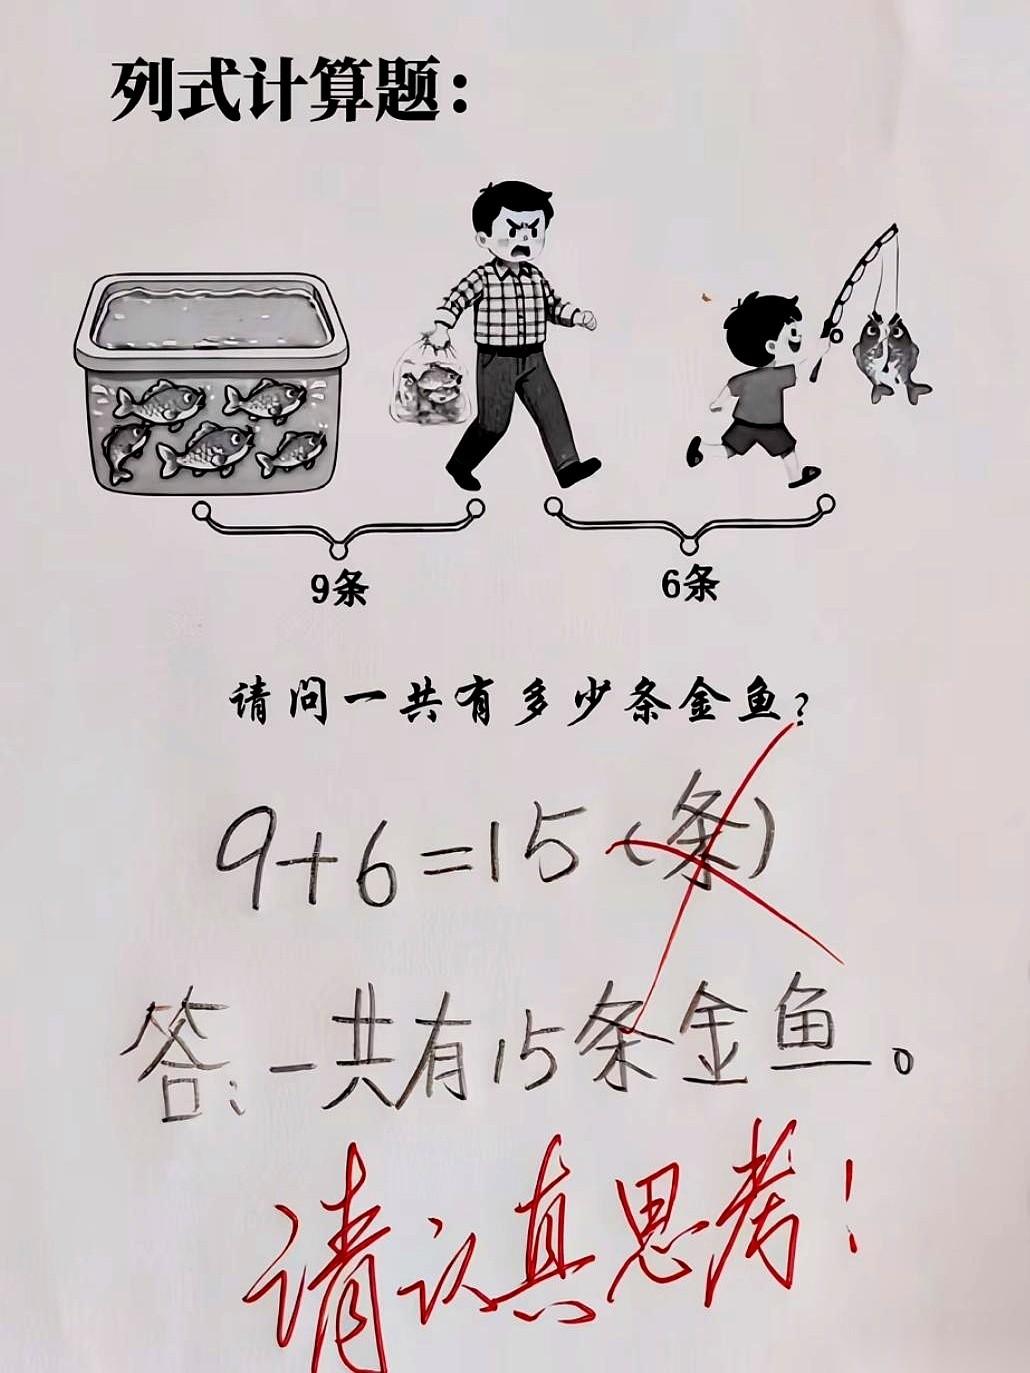 列式计算题：
9条 6条
请问一共有多少条金鱼？
9+6=15（条）
答：一共有15条金鱼。
请认真思考！